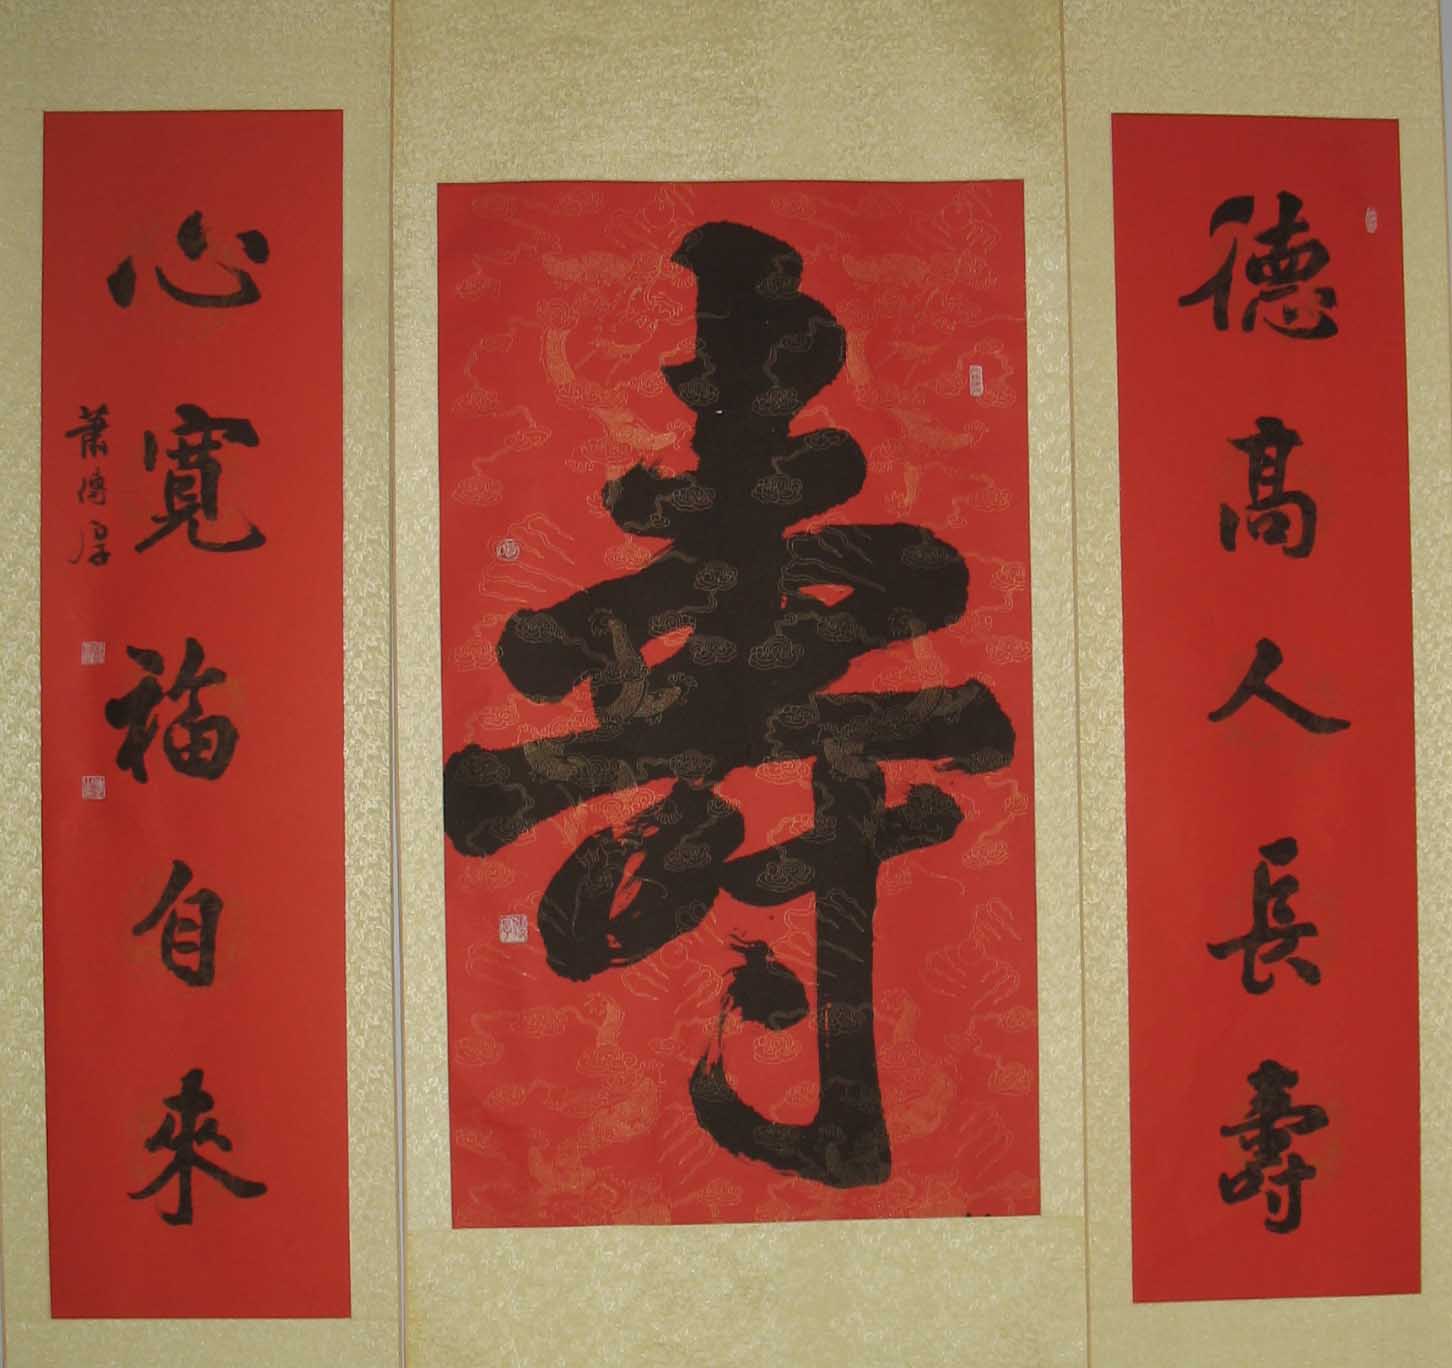 德高人長壽
壽
心寬福自來
蕭傳厚